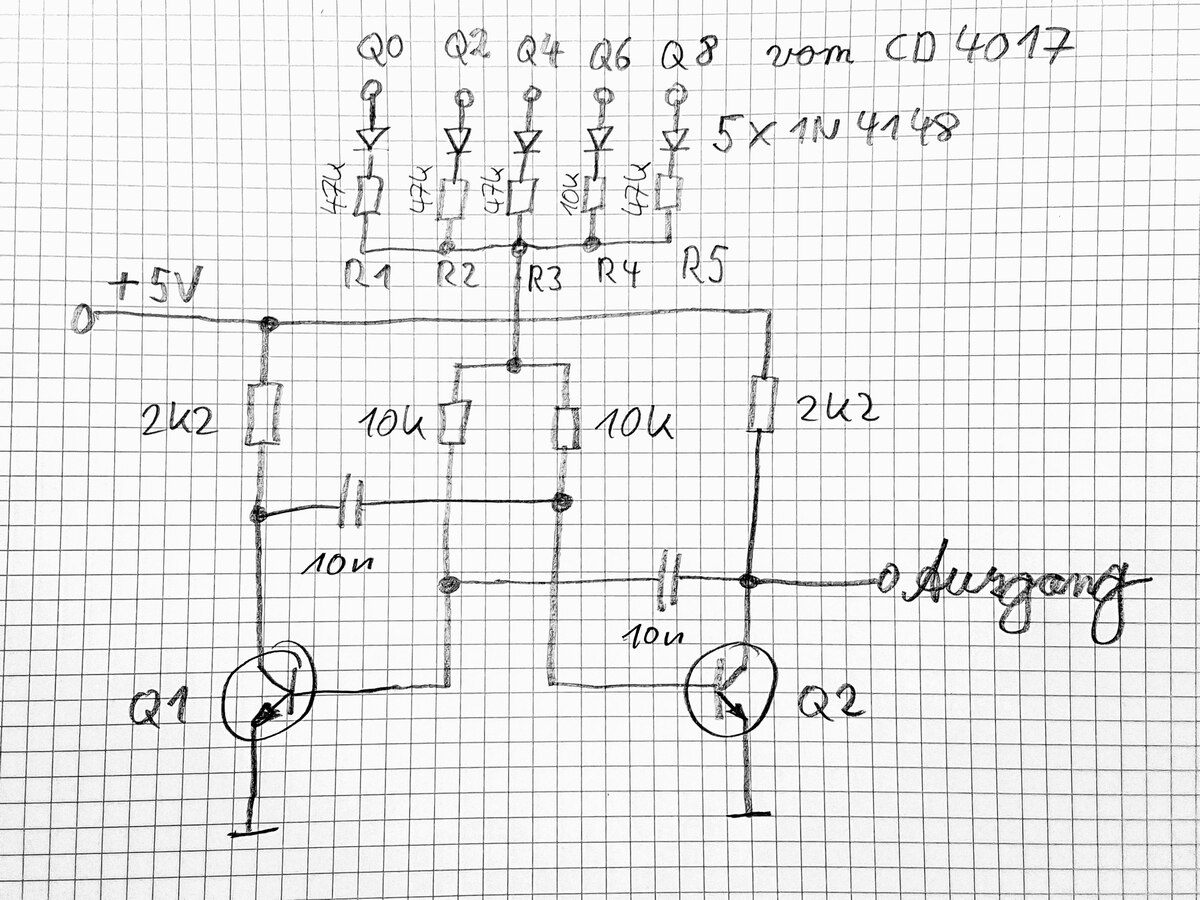 Q0 Q2 Q4 Q6 Q8 vom CD 4017
5 X 1N 4148
47k 47k 47k 10k 47k
R1 R2 R3 R4 R5
+5V
2k2 10k 10k 2k2
10n
Ausgang
10n
Q1 Q2